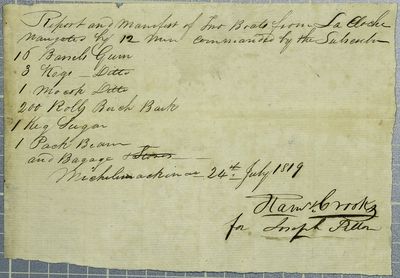 Report and Manifest of Two Boats from La Cloche
navigated by 12 men commanded by the Subscriber
16 Barrels Gum
3 Kegs Ditto
1 Mocok Ditto
200 Rolls Birch Bark
1 Keg Sugar
1 Pack Beaver
and Bagage Stores
Michilimackinac 24th July 1819
Ramsy Crooks
for Joseph